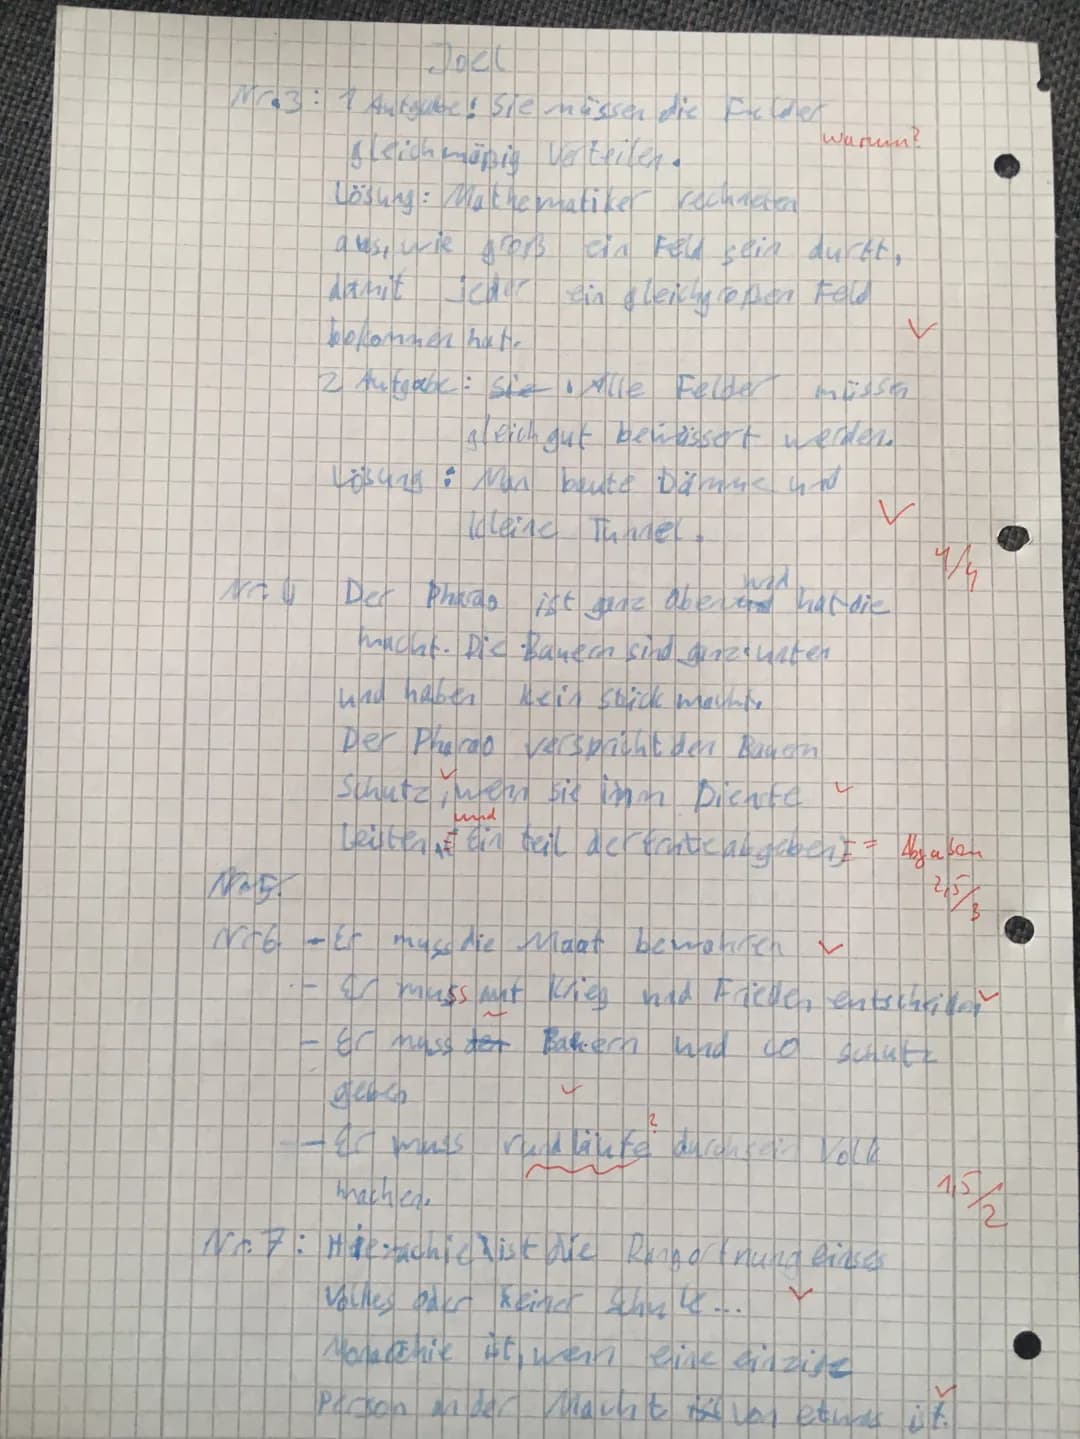 Joel
Nr.3: 1 Aufgabe: Sie müssen die Felder
warum?
gleichmäßig verteilen.
Lösung: Mathematiker rechneten
aus, wie groß ein Feld sein durft,
damit jeder ein gleichgroßen Feld
bekommen hat.
2 Aufgabe: Sie Alle Felder müssen
gleich gut bewässert werden.
Lösung: Man baute Dämme und
kleine Tunnel.
4/4
Nr. 4 Der Pharao ist ganz oben und hat die
macht. Die Bauern sind ganz unten
und haben kein stück macht.
Der Pharao verspricht den Bauern
Schutz, wenn sie imm Dienste
und
leisten, ein teil der Ernte abgeben = Abgaben
2,5/3
Nr 5:
Nr 6 - Er muss die Maat bewahren
- Er muss mit Krieg und Frieden entscheiden
- Er muss der Bauern und co schutz
geben
- Er muss rundläufe ? durch sein Volk
machen.
1,5/2
Nr. 7: Hierachie ist die Rangortnung eines
Volkes oder keiner Schule...
Monachie ist, wenn eine einzige
Person an der Macht von etwas ist.